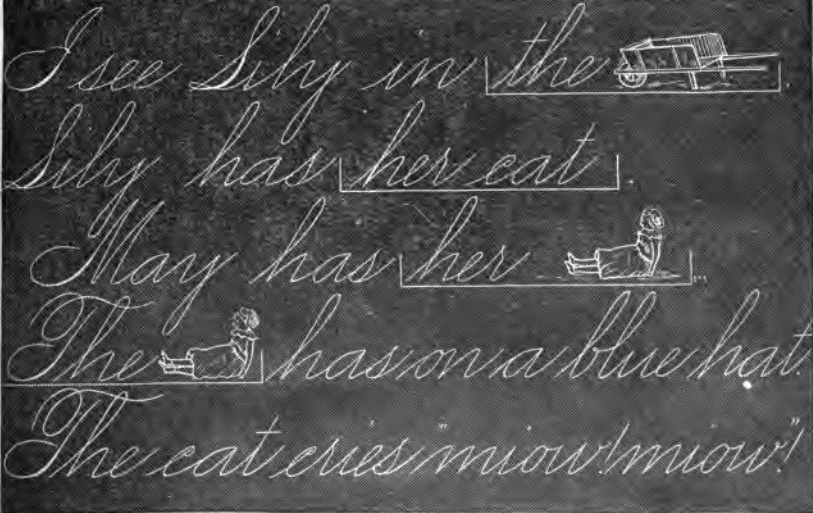 I see Lily in the .
Lily has her cat.
May has her .
The has on a blue hat.
The cat cries "miow! miow!"